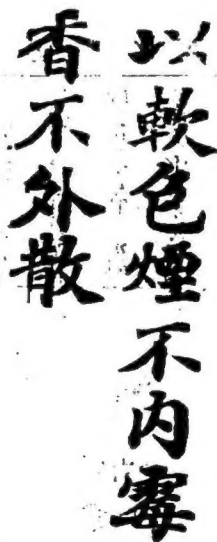 以軟包煙不内霉
香不外散